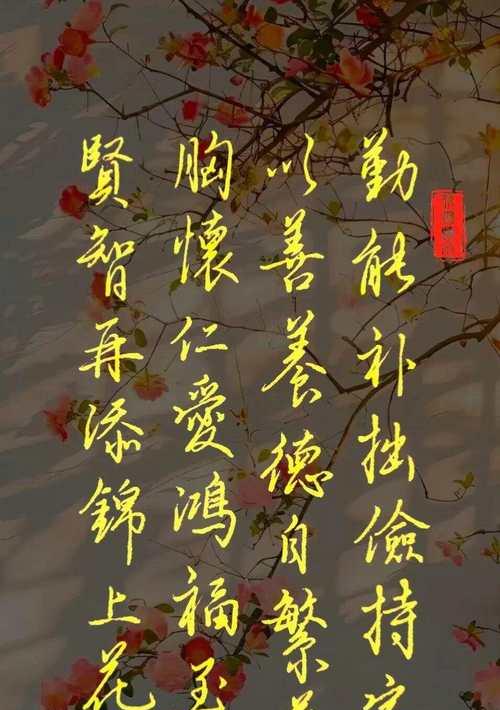 勤能补拙儉持
以善養德自繁
胸懷仁愛鴻福至
賢智再添錦上花